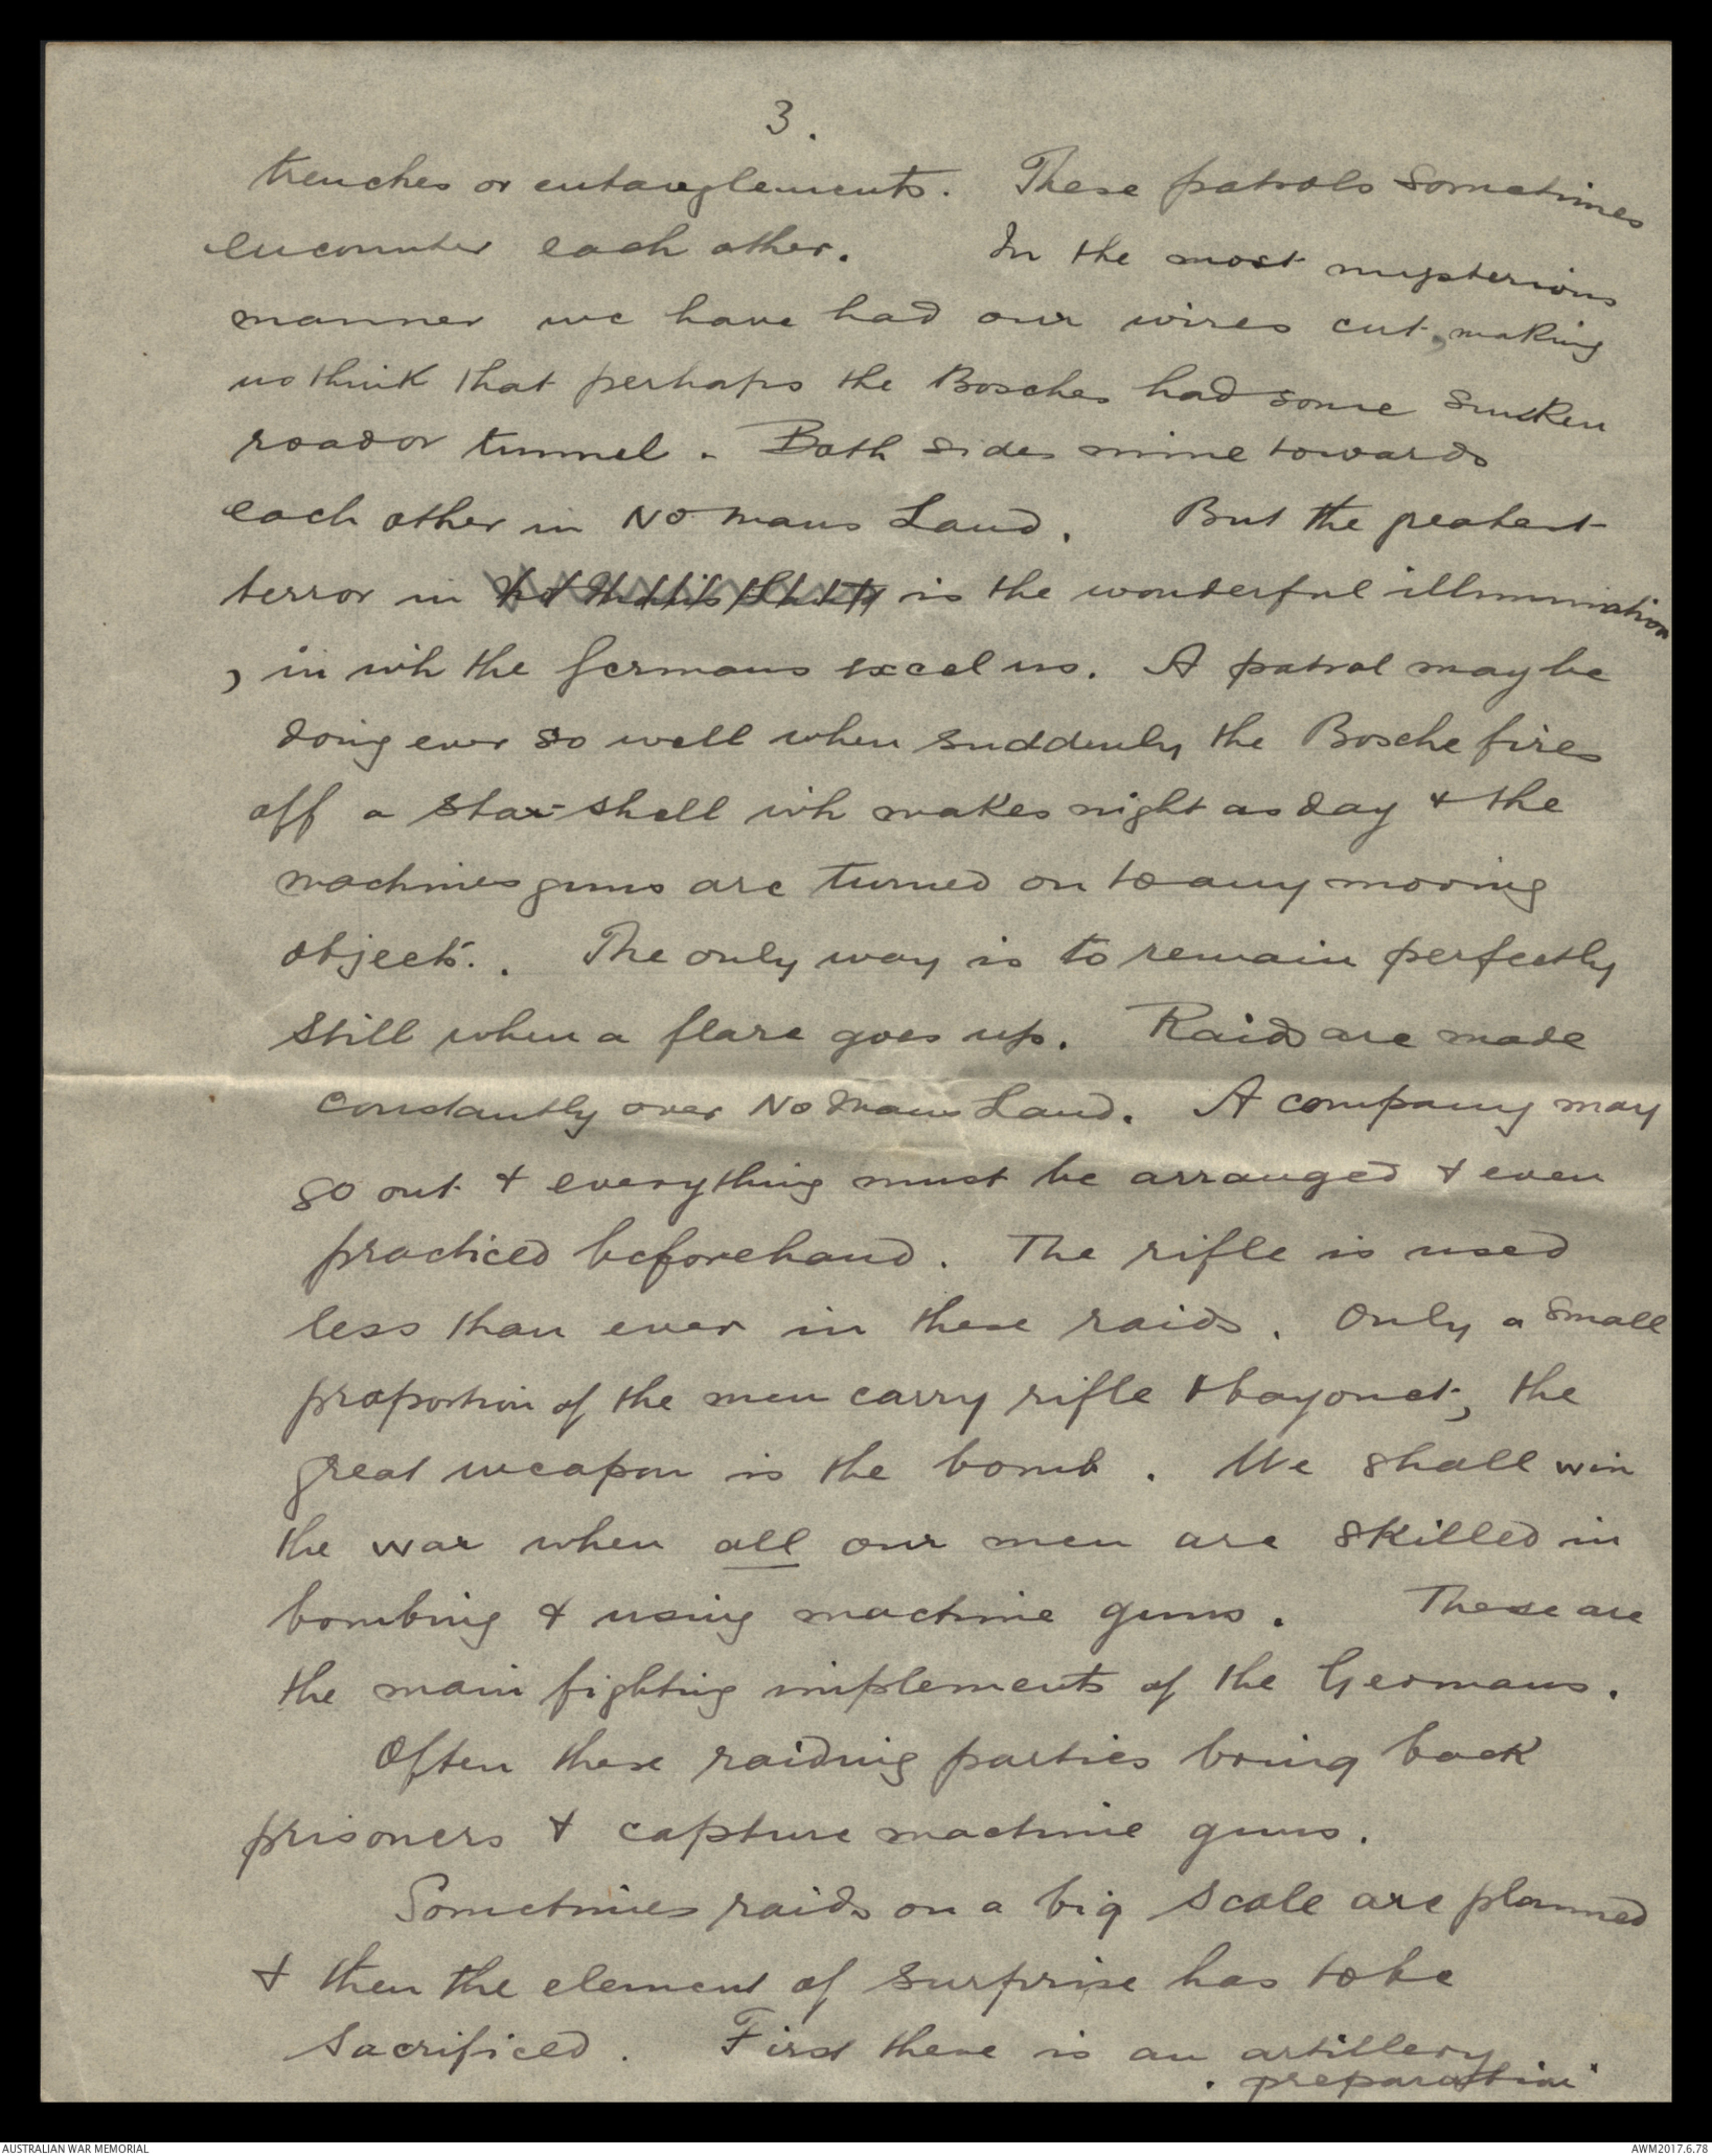 3.
trenches or entanglements. These patrols sometimes
encounter each other. In the most mysterious
manner we have had our wires cut, making
us think that perhaps the Bosches had some sunken
road or tunnel. Both sides mine towards
each other in No mans Land. But the greatest
terror in is the wonderful illumination
, in wh the Germans excel us. A patrol may be
doing ever so well when suddenly the Bosche fires
off a star-shell wh makes night as day & the
machines guns are turned on to any moving
objects. The only way is to remain perfectly
still when a flare goes up. Raids are made
constantly over No mans Land. A company may
go out & everything must be arranged & even
practiced beforehand. The rifle is used
less than ever in these raids. Only a small
proportion of the men carry rifle & bayonet, the
great weapon is the bomb. We shall win
the war when all our men are skilled in
bombing & using machine guns. These are
the main fighting implements of the Germans.
Often these raiding parties bring back
prisoners & capture machine guns.
Sometimes raids on a big scale are planned
& then the element of surprise has to be
sacrificed. First there is an artillery
"preparation"
AUSTRALIAN WAR MEMORIAL
AWM2017.6.78